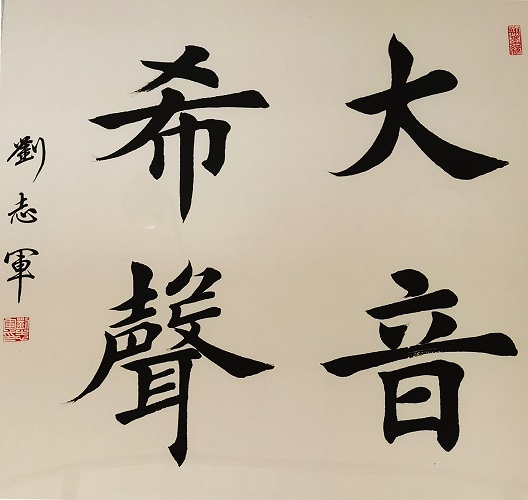 大音
希聲
劉志軍